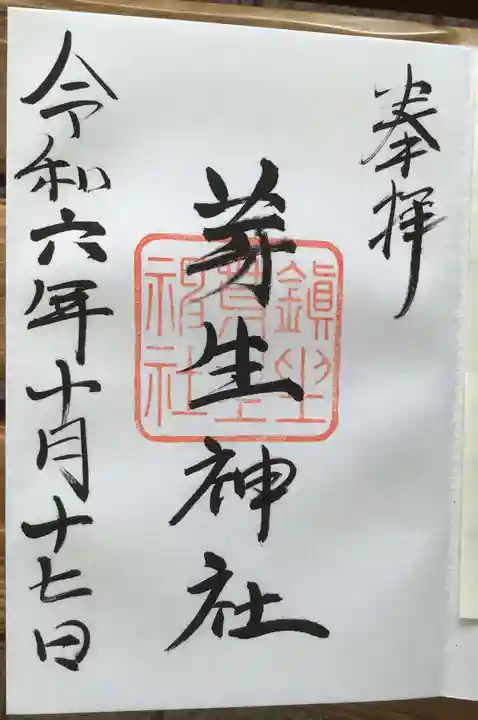 奉拝
芽生神社
令和六年十月十七日
鎮坐
神社